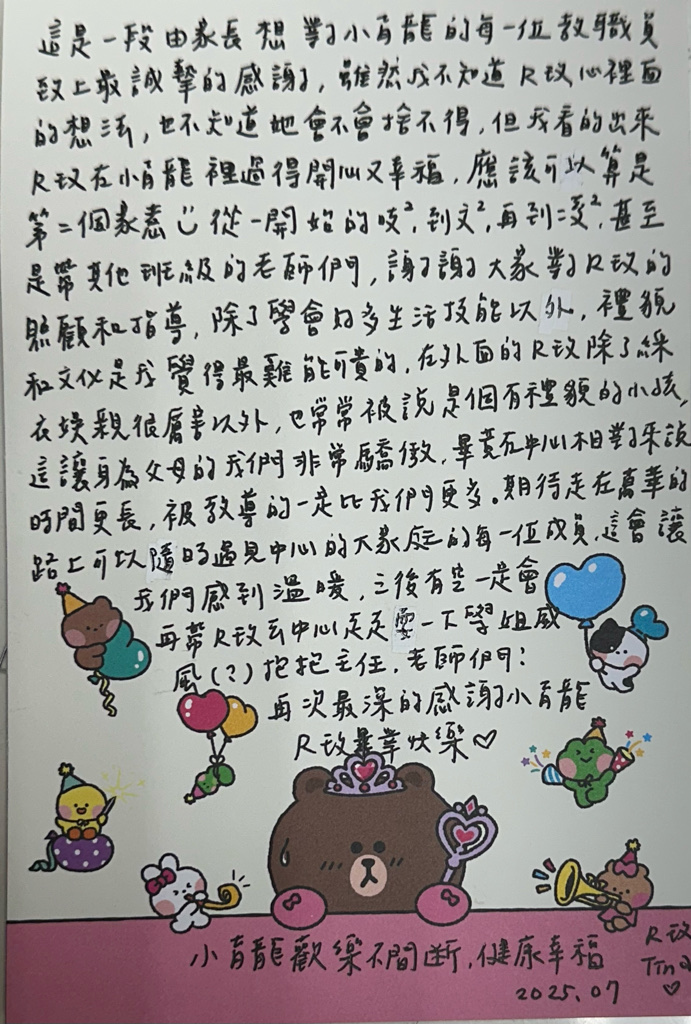 這是一段由家長想對小青龍的每一位教職員
致上最誠摯的感謝，雖然我不知道R玟心裡面
的想法，也不知道她會不會捨不得，但我看的出來
R玟在小青龍裡過得開心又幸福，應該可以算是
第二個家惹 從一開始的吱²，到文²，再到雯²，甚至
是帶其他班級的老師們，謝謝大家對R玟的
照顧和指導，除了學會好多生活技能以外，禮貌
和文化是我覺得最難能可貴的，在外面的R玟除了綵
衣娛親很厲害以外，也常常被說是個有禮貌的小孩，
這讓身為父母的我們非常驕傲，畢竟在中心相對來說
時間更長，被教導的一定比我們更多。期待走在萬華的
路上可以隨時遇見中心的大家庭的每一位成員，這會讓
我們感到溫暖，之後有空一定會
再帶R玟去中心走走耍一下學姐威
風(？)抱抱主任，老師們！
再次最深的感謝小青龍
R玟畢業快樂♡
小青龍歡樂不間斷，健康幸福
R玟
♡
2025.07